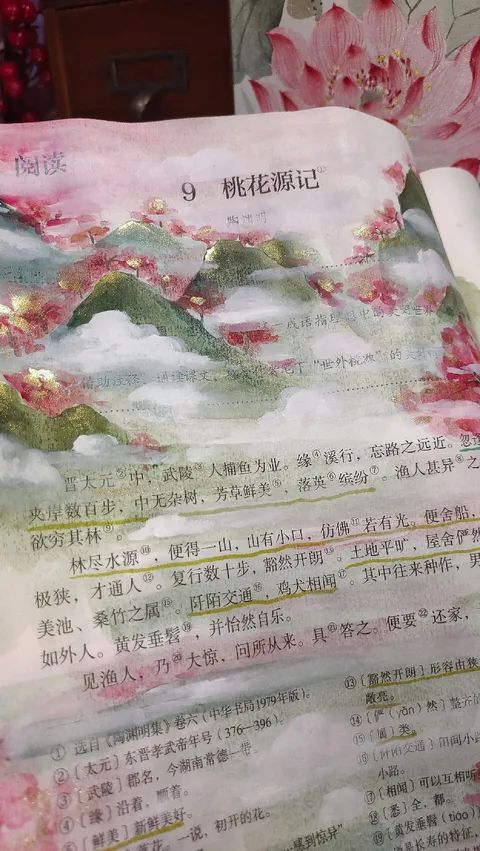 阅读
9 桃花源记①
陶渊明
一成语指
借助注释，通读课文，
下“世外桃源”的
晋太元②中，武陵③人捕鱼为业。缘④溪行，忘路之远近。忽逢
夹岸数百步，中无杂树，芳草鲜美⑤，落英⑥缤纷⑦。渔人甚异⑧之
欲穷其林⑨。
林尽水源⑩，便得一山，山有小口，仿佛⑪若有光。便舍船，
极狭，才通人⑫。复行数十步，豁然开朗⑬。土地平旷，屋舍俨然
美池、桑竹之属⑮。阡陌交通⑯，鸡犬相闻⑰。其中往来种作，男
如外人。黄发垂髫⑲，并怡然自乐。
见渔人，乃⑳大惊，问所从来。具㉑答之。便要㉒还家，
① 选自《陶渊明集》卷六（中华书局1979年版）。
②〔太元〕东晋孝武帝年号（376—396）。
③〔武陵〕郡名，今湖南常德一带。
④〔缘〕沿着，顺着。
⑤〔鲜美〕新鲜美好。
落花。一说，初开的花。
“感到惊异”
⑬〔豁然开朗〕形容由狭
敞亮。
⑭〔俨（yǎn）然〕整齐的
⑮〔属〕类。
⑯〔阡陌交通〕田间小路
小路。
⑰〔相闻〕可以互相听
⑱〔悉〕全，都。
⑲〔黄发垂髫（tiáo）
是长寿的特征，